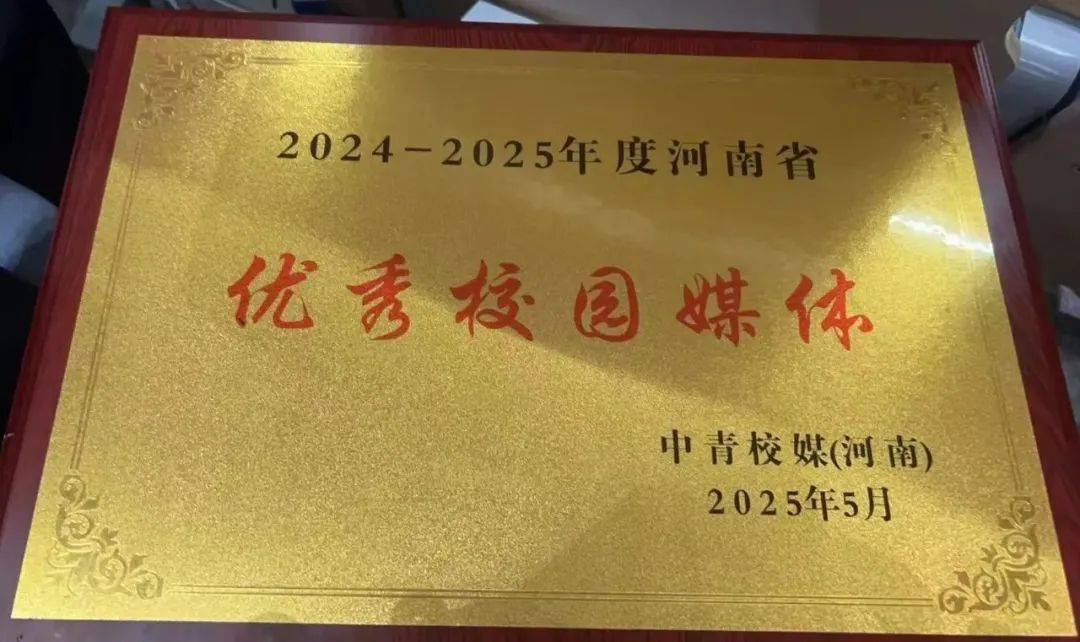 2024-2025年度河南省
优秀校园媒体
中青校媒(河南)
2025年5月